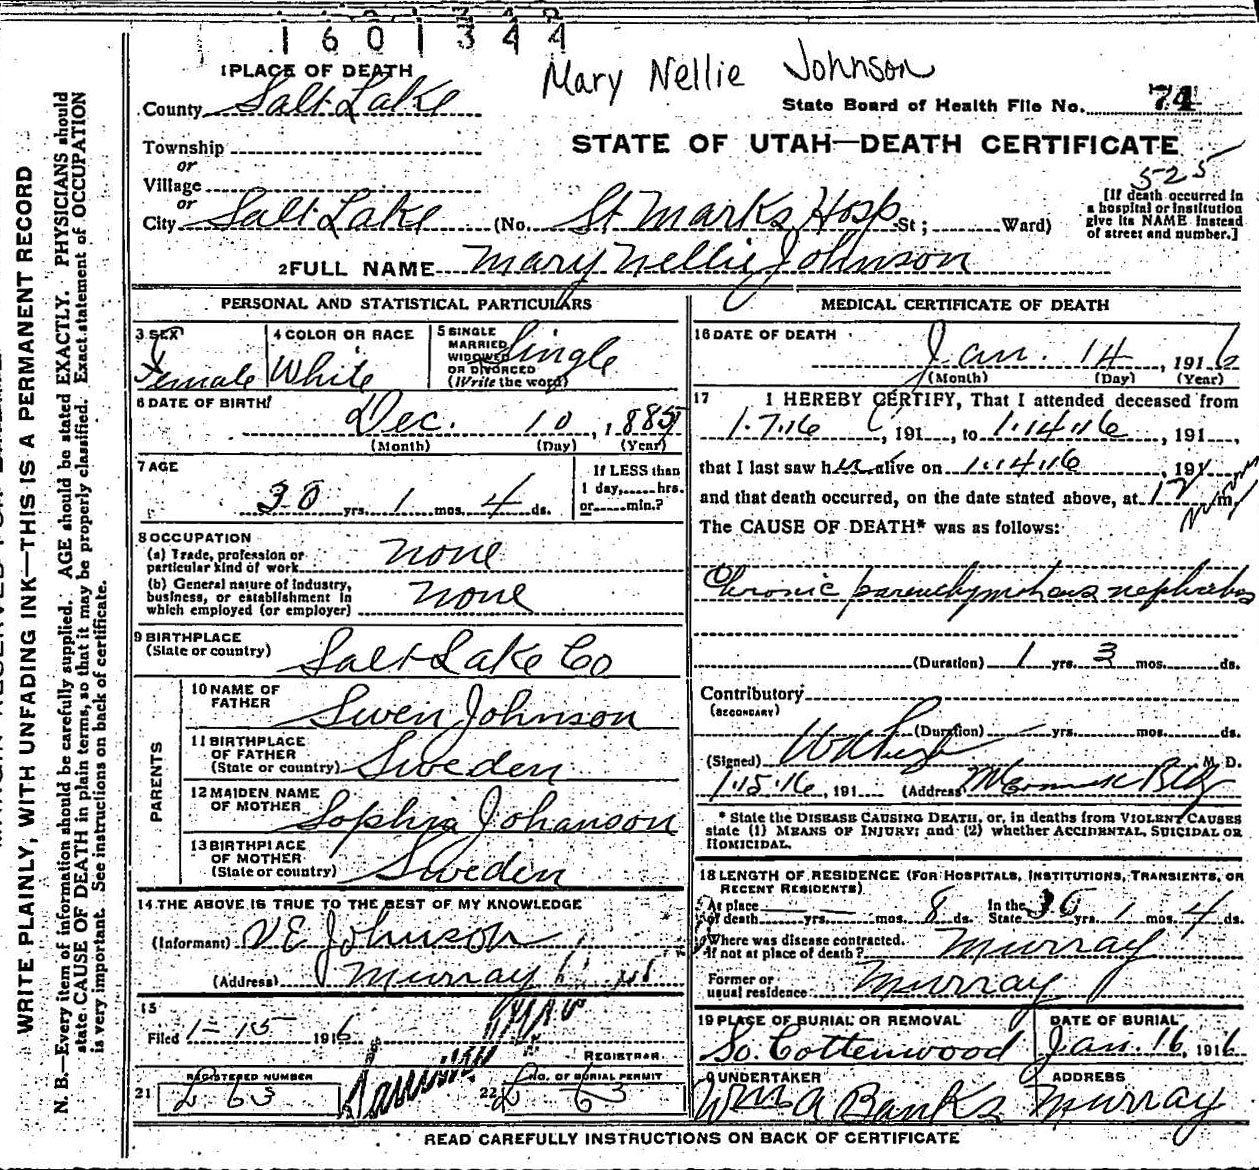 1601344
Mary Nellie Johnson
1 PLACE OF DEATH
County Salt Lake
State Board of Health File No. 74
Township
or
Village
or
City Salt Lake (No. St Marks Hosp St; Ward)
STATE OF UTAH—DEATH CERTIFICATE
525
[If death occurred in
a hospital or institution
give its NAME instead
of street and number.]
2 FULL NAME Mary Nellie Johnson
PERSONAL AND STATISTICAL PARTICULARS
3 SEX
Female
4 COLOR OR RACE
White
5 SINGLE
MARRIED
WIDOWED
OR DIVORCED
(Write the word)
Single
6 DATE OF BIRTH
Dec. 10, 1885
(Month) (Day) (Year)
7 AGE
30 yrs. 1 mos. 4 ds.
If LESS than
1 day, hrs.
or min.?
8 OCCUPATION
(a) Trade, profession or
particular kind of work none
(b) General nature of industry,
business, or establishment in
which employed (or employer) none
9 BIRTHPLACE
(State or country) Salt Lake Co
PARENTS
10 NAME OF
FATHER Swen Johnson
11 BIRTHPLACE
OF FATHER
(State or country) Sweden
12 MAIDEN NAME
OF MOTHER Sophia Johanson
13 BIRTHPLACE
OF MOTHER
(State or country) Sweden
14 THE ABOVE IS TRUE TO THE BEST OF MY KNOWLEDGE
(Informant) V E Johnson
(Address) Murray
15
Filed 1-15 1916
REGISTRAR
REGISTERED NUMBER
21 L 63
NO. OF BURIAL PERMIT
22 L 63
MEDICAL CERTIFICATE OF DEATH
16 DATE OF DEATH
Jan. 14, 1916
(Month) (Day) (Year)
17 I HEREBY CERTIFY, That I attended deceased from
1.7.16, 191 , to 1.14.16, 191 ,
that I last saw her alive on 1.14.16, 191
and that death occurred, on the date stated above, at 12 m.
The CAUSE OF DEATH* was as follows:
Chronic parenchymatous nephritis
(Duration) 1 yrs. 3 mos. ds.
Contributory
(SECONDARY)
(Duration) yrs. mos. ds.
(Signed) M. D.
1.15.16, 191 (Address)
* State the DISEASE CAUSING DEATH, or, in deaths from VIOLENT CAUSES
state (1) MEANS OF INJURY; and (2) whether ACCIDENTAL, SUICIDAL OR
HOMICIDAL.
18 LENGTH OF RESIDENCE (FOR HOSPITALS, INSTITUTIONS, TRANSIENTS, OR
RECENT RESIDENTS)
At place
of death — yrs. — mos. 8 ds. In the
State 30 yrs. 1 mos. 4 ds.
Where was disease contracted,
if not at place of death? Murray
Former or
usual residence Murray
19 PLACE OF BURIAL OR REMOVAL
So. Cottenwood
DATE OF BURIAL
Jan. 16, 1916
UNDERTAKER
Wm A Banks
ADDRESS
Murray
READ CAREFULLY INSTRUCTIONS ON BACK OF CERTIFICATE
WRITE PLAINLY, WITH UNFADING INK—THIS IS A PERMANENT RECORD
N. B.—Every item of information should be carefully supplied. AGE should be stated EXACTLY. PHYSICIANS should
state CAUSE OF DEATH in plain terms, so that it may be properly classified. Exact statement of OCCUPATION
is very important. See instructions on back of certificate.